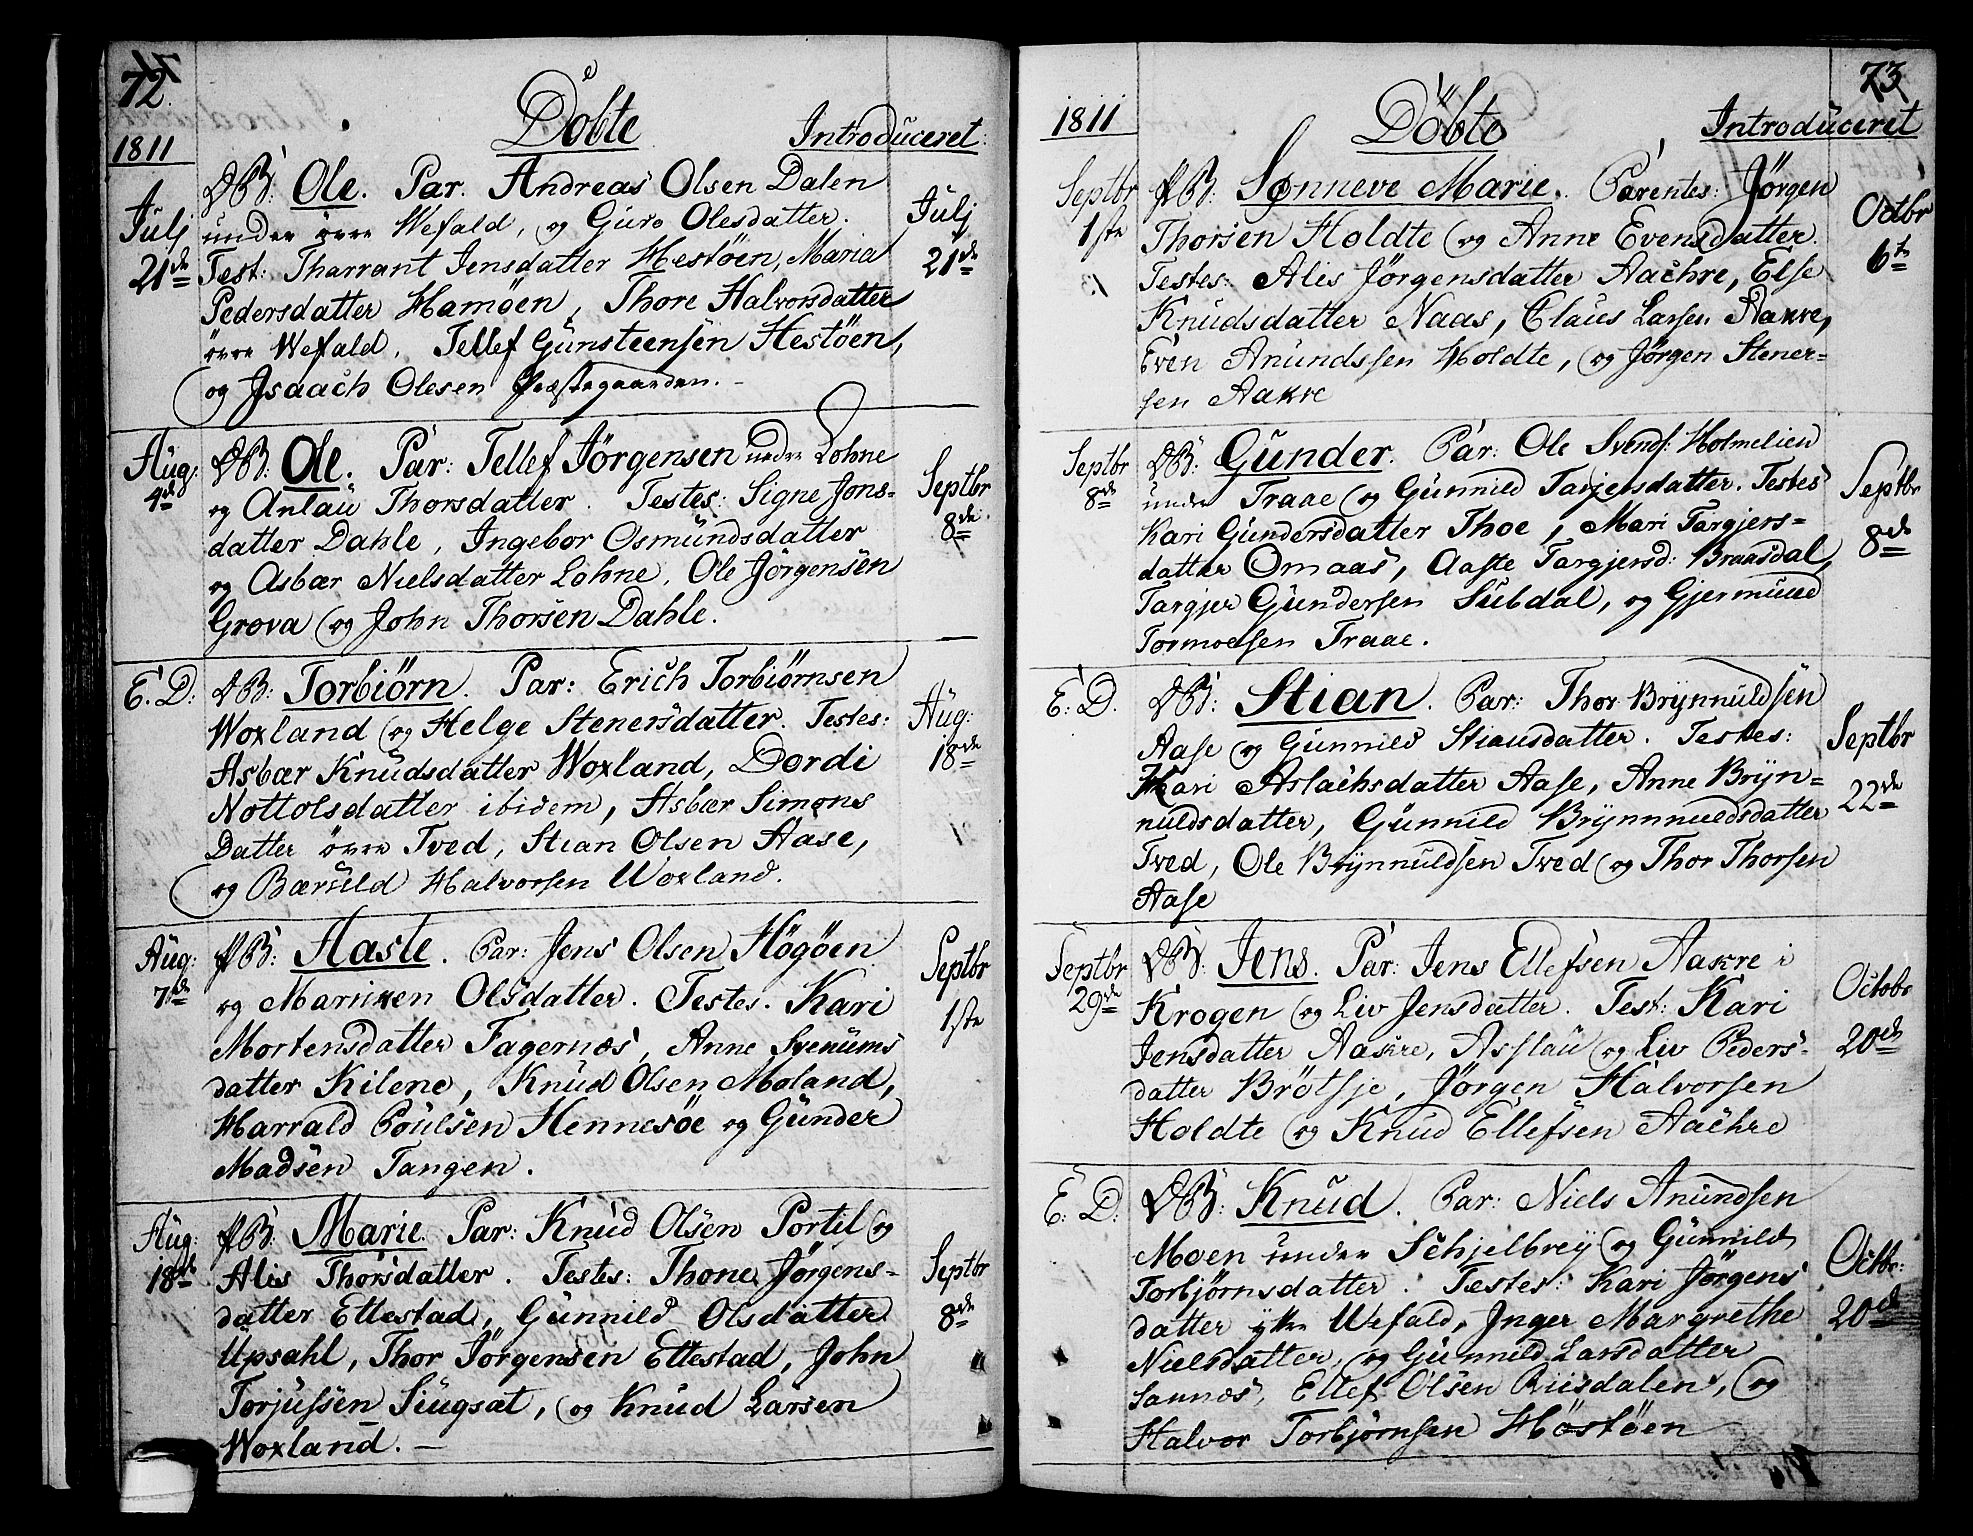 72.
Döbte
Introduceret:
1811
Julj
21de
DB: Ole. Par. Andreas Olsen Dalen
under övre Wefald, og Guro Olesdatter.
Test: Tharrant Jensdatter Hestöen, Maria
Pedersdatter Hamöen, Thore Halvorsdatter
övre Wefald, Tellef Gunsteensen Hestöen,
og Isaach Olesen Præstegaarden. -
Julj
21de
Aug:
4de
DB: Ole. Par: Tellef Jörgensen nedre Lohne
og Anlau Thorsdatter. Testes: Signe Jons-
datter Dahle, Ingebor Osmundsdatter
og Asbær Nielsdatter Lohne, Ole Jörgensen
Grova og John Thorsen Dahle.
Septbr
8de
E. D:
DB: Torbiörn. Par: Erich Torbiörnsen
Woxland og Helge Stenersdatter. Testes:
Asbær Knudsdatter Woxland, Dordi
Nottolsdatter ibidem, Asbær Simons
Datter övre Tved, Stian Olsen Aase,
og Bæruld Halvorsen Woxland.
Aug:
18de
Aug:
7de
PB: Aaste. Par: Jens Olsen Högöen
og Marikken Olsdatter. Testes. Kari
Mortensdatter Fagernæs, Anne Svenums
datter Kilene, Knud Olsen Moland,
Harrald Poulsen Hennesöe og Gunder
Madsen Tangen.
Septbr
1ste
Aug:
18de
PB: Marie. Par: Knud Olsen Portil og
Alis Thorsdatter. Testes: Thone Jörgens-
datter Ettestad, Gunnild Olsdatter
Upsahl, Thor Jörgensen Ettestad, John
Torjussen Siugsat, og Knud Larsen
Woxland. -
Septbr
8de
73
1811
Döbte
Introduceret
Septbr
1ste
PB: Sønneve Marie. Parentes: Jörgen
Thorsen Holdte og Anne Evensdatter.
Testes: Alis Jörgensdatter Aachre, Else
Knudsdatter Naas, Claus Larsen Aakre,
Even Anundssen Holdte, og Jörgen Stener-
sen Aakre
Octbr
6te
Septbr
8de
DB: Gunder. Par: Ole Svends: Holmelien
under Traae og Gunnild Tarjersdatter. Testes
Kari Gundersdatter Thoe, Mari Targjers-
datter Omaas, Aaste Targjersd: Braasdal,
Targjer Gundersen Subdal, og Gjermund
Tormodsen Traae.
Septbr
8de
E. D.
DB: Stian. Par: Thor Brynnuldsen
Aase og Gunnild Stiansdatter. Testes:
Kari Aslachsdatter Aase, Anne Bryn-
nuldsdatter, Gunnild Brynnuldsdatter
Tved, Ole Brynnuldsen Tved og Thor Thorsen
Aase
Septbr
22de
Septbr
29de
DB: Jens. Par: Jens Ellefsen Aakre i
Krogen og Liv Jensdatter. Test: Kari
Jensdatter Aakre, Asslau og Liv Peders-
datter Brötsje, Jörgen Halvorsen
Holdte og Knud Ellefsen Aachre
Octobr
20de
E. D:
DB: Knud. Par: Niels Anundsen
Moen under Schjelbrey og Gunnild
Torbjørnsdatter. Testes: Kari Jørgens
datter Wefald, Inger Margrethe
Nielsdatter, og Gunnild Larsdatter
Sannæs, Ellef Olsen Riisdalen, og
Halvor Torbjørnsen Höstöen
Octbr:
20de